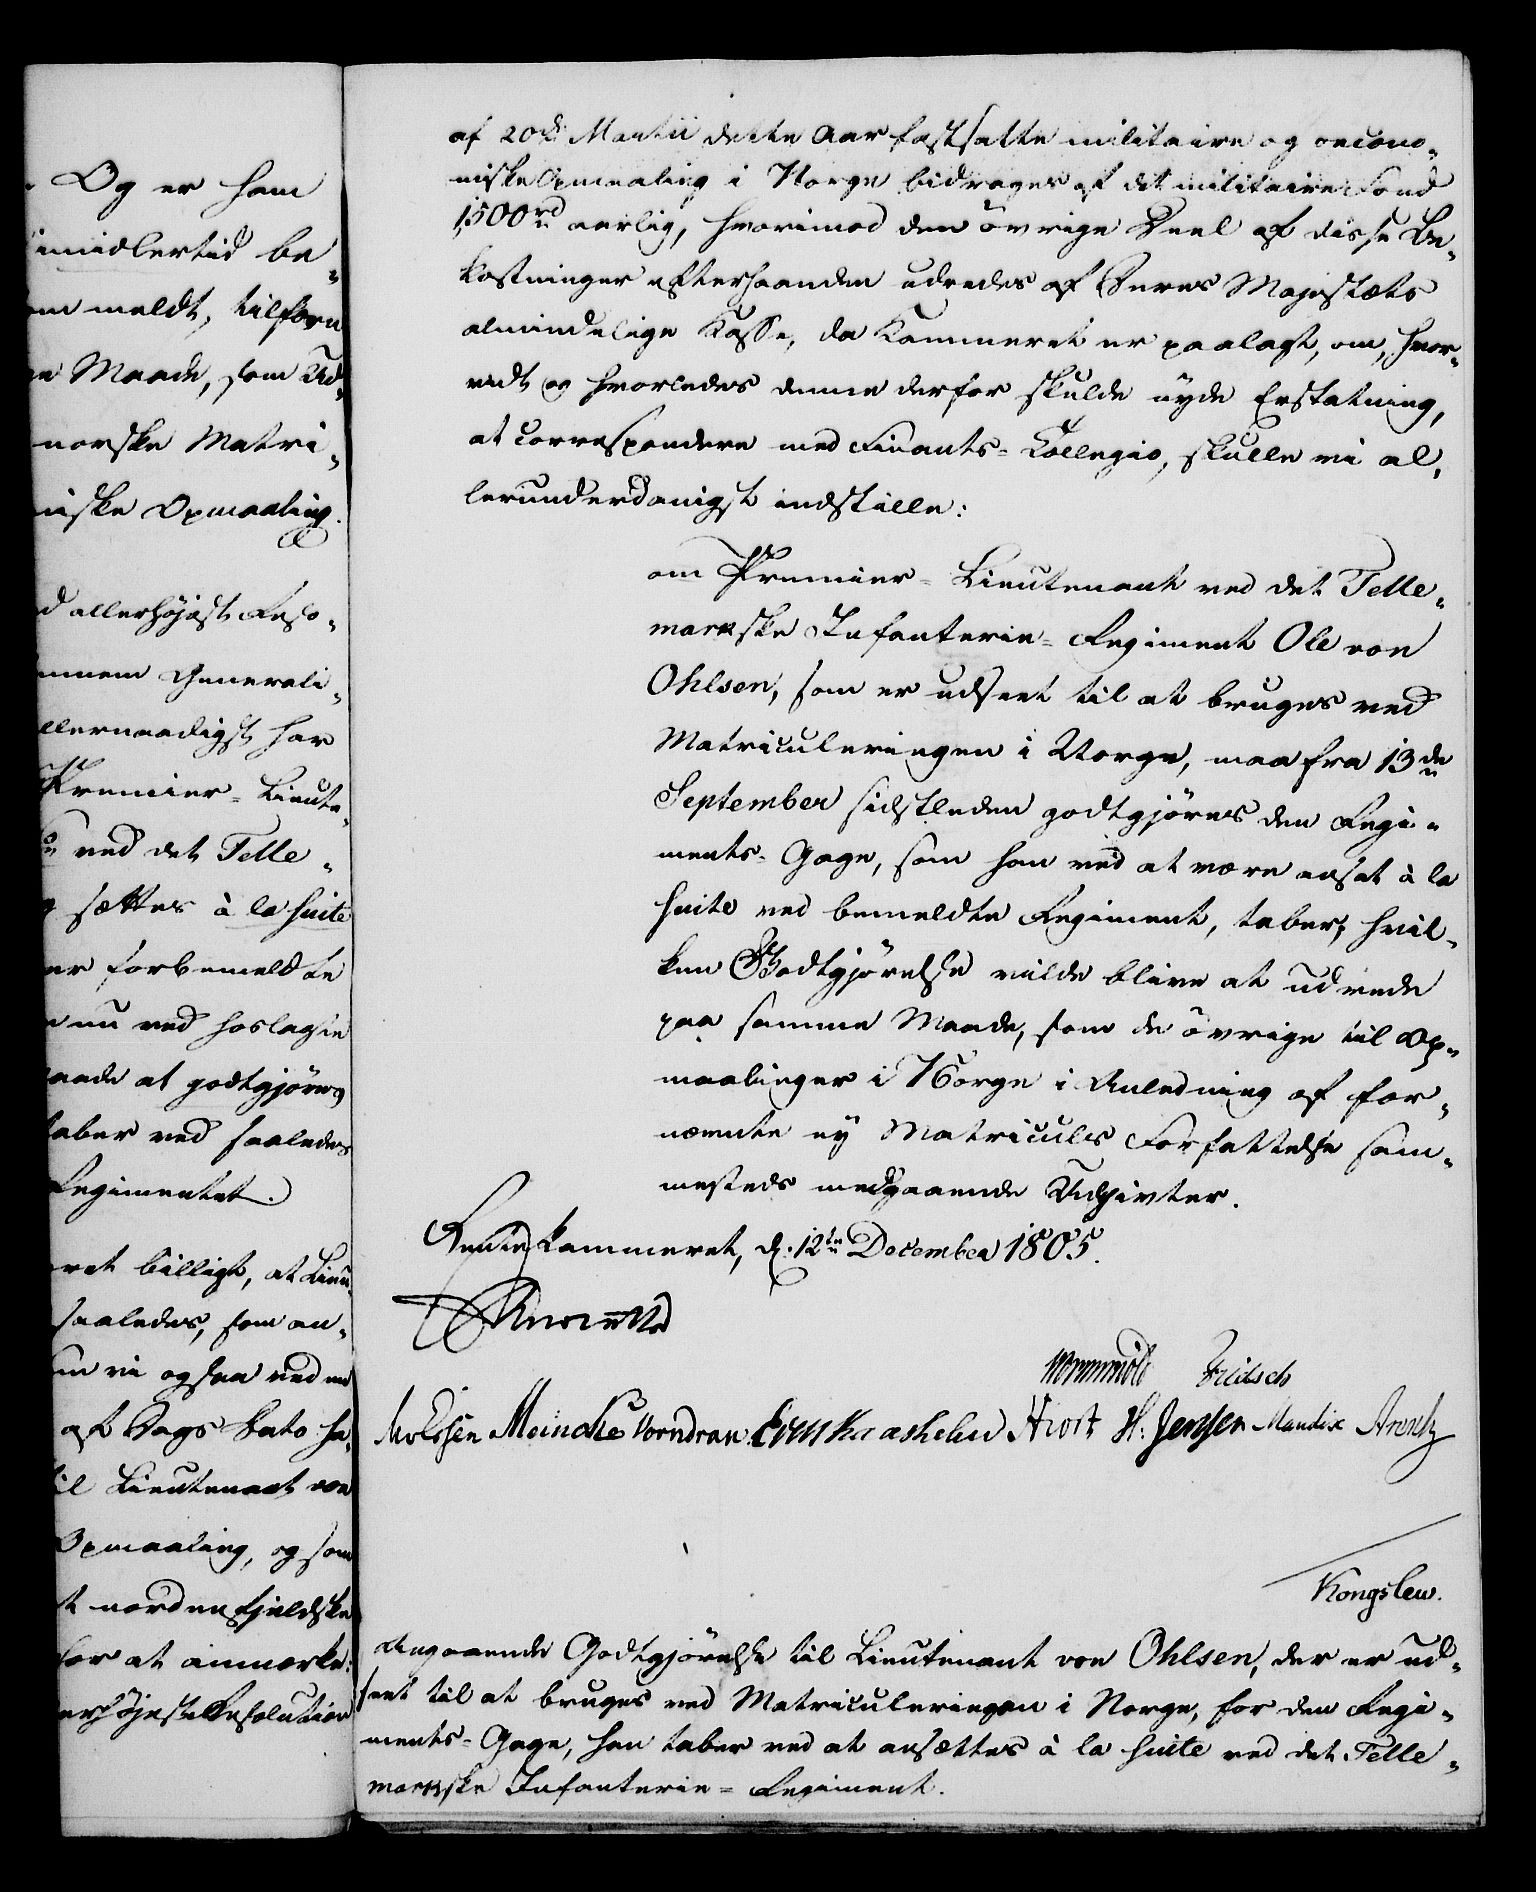 Og er ham
imidlertid be-
meldt, tilforn
Maade, som Ud-
norske Matri-
niske Opmaaling.
allerhöjest Reso-
Generali-
llernaadigst har
Premier-Lieute-
ved det Telle-
sættes à la suite
forbemeldte
nu ved hoslagte
aade at godtgjöres
taber ved saaledes
Regimentet.
billigt, at Lieu-
saaledes, som an-
vi ogsaa ved en
af Dags Dato
Lieutenant von
Opmaaling, og som
nordenfjeldske
for at anmærke:
erhöjeste Resolution
af 20de Martii dette Aar fastsatte militaire og oecono-
miske Opmaaling i Norge bidrages af det militaire Fond
1,500 rd aarlig, hvorimod den övrige Deel af disse Be-
kostninger efterhaanden udredes af Deres Majestæts
almindelige Kasse, da Kammeret er paalagt, om, hvor-
vidt og hvorledes denne derfor skulde nyde Erstatning,
at correspondere med Finants-Collegio, skulle vi al-
lerunderdanigst indstille:
om Premier-Lieutenant ved det Telle-
markske Infanterie-Regiment Ole von
Ohlsen, som er udseet til at bruges ved
Matriculeringen i Norge, maa fra 13de
September sidstleden godtgjöres den Regi-
ments-Gage, som han ved at være ansat à la
suite ved bemeldte Regiment, taber; hvil-
ken Godtgjörelse vilde blive at udrede
paa samme Maade, som de övrige til Op-
maalinger i Norge i Anledning af for-
nævnte ny Matriculs Forfattelse sam-
mesteds medgaaende Udgivter.
Rentekammeret, d. 12te December 1805.
Wormskiold Fridsch
Meincke Vorndran Hiort H. Jensen Mandix Arentz
Kongslew.
Angaaende Godtgjörelse til Lieutenant von Ohlsen, der er ud-
seet til at bruges ved Matriculeringen i Norge, for den Regi-
ments-Gage, han taber ved at ansættes à la suite ved det Telle-
markske Infanterie-Regiment.